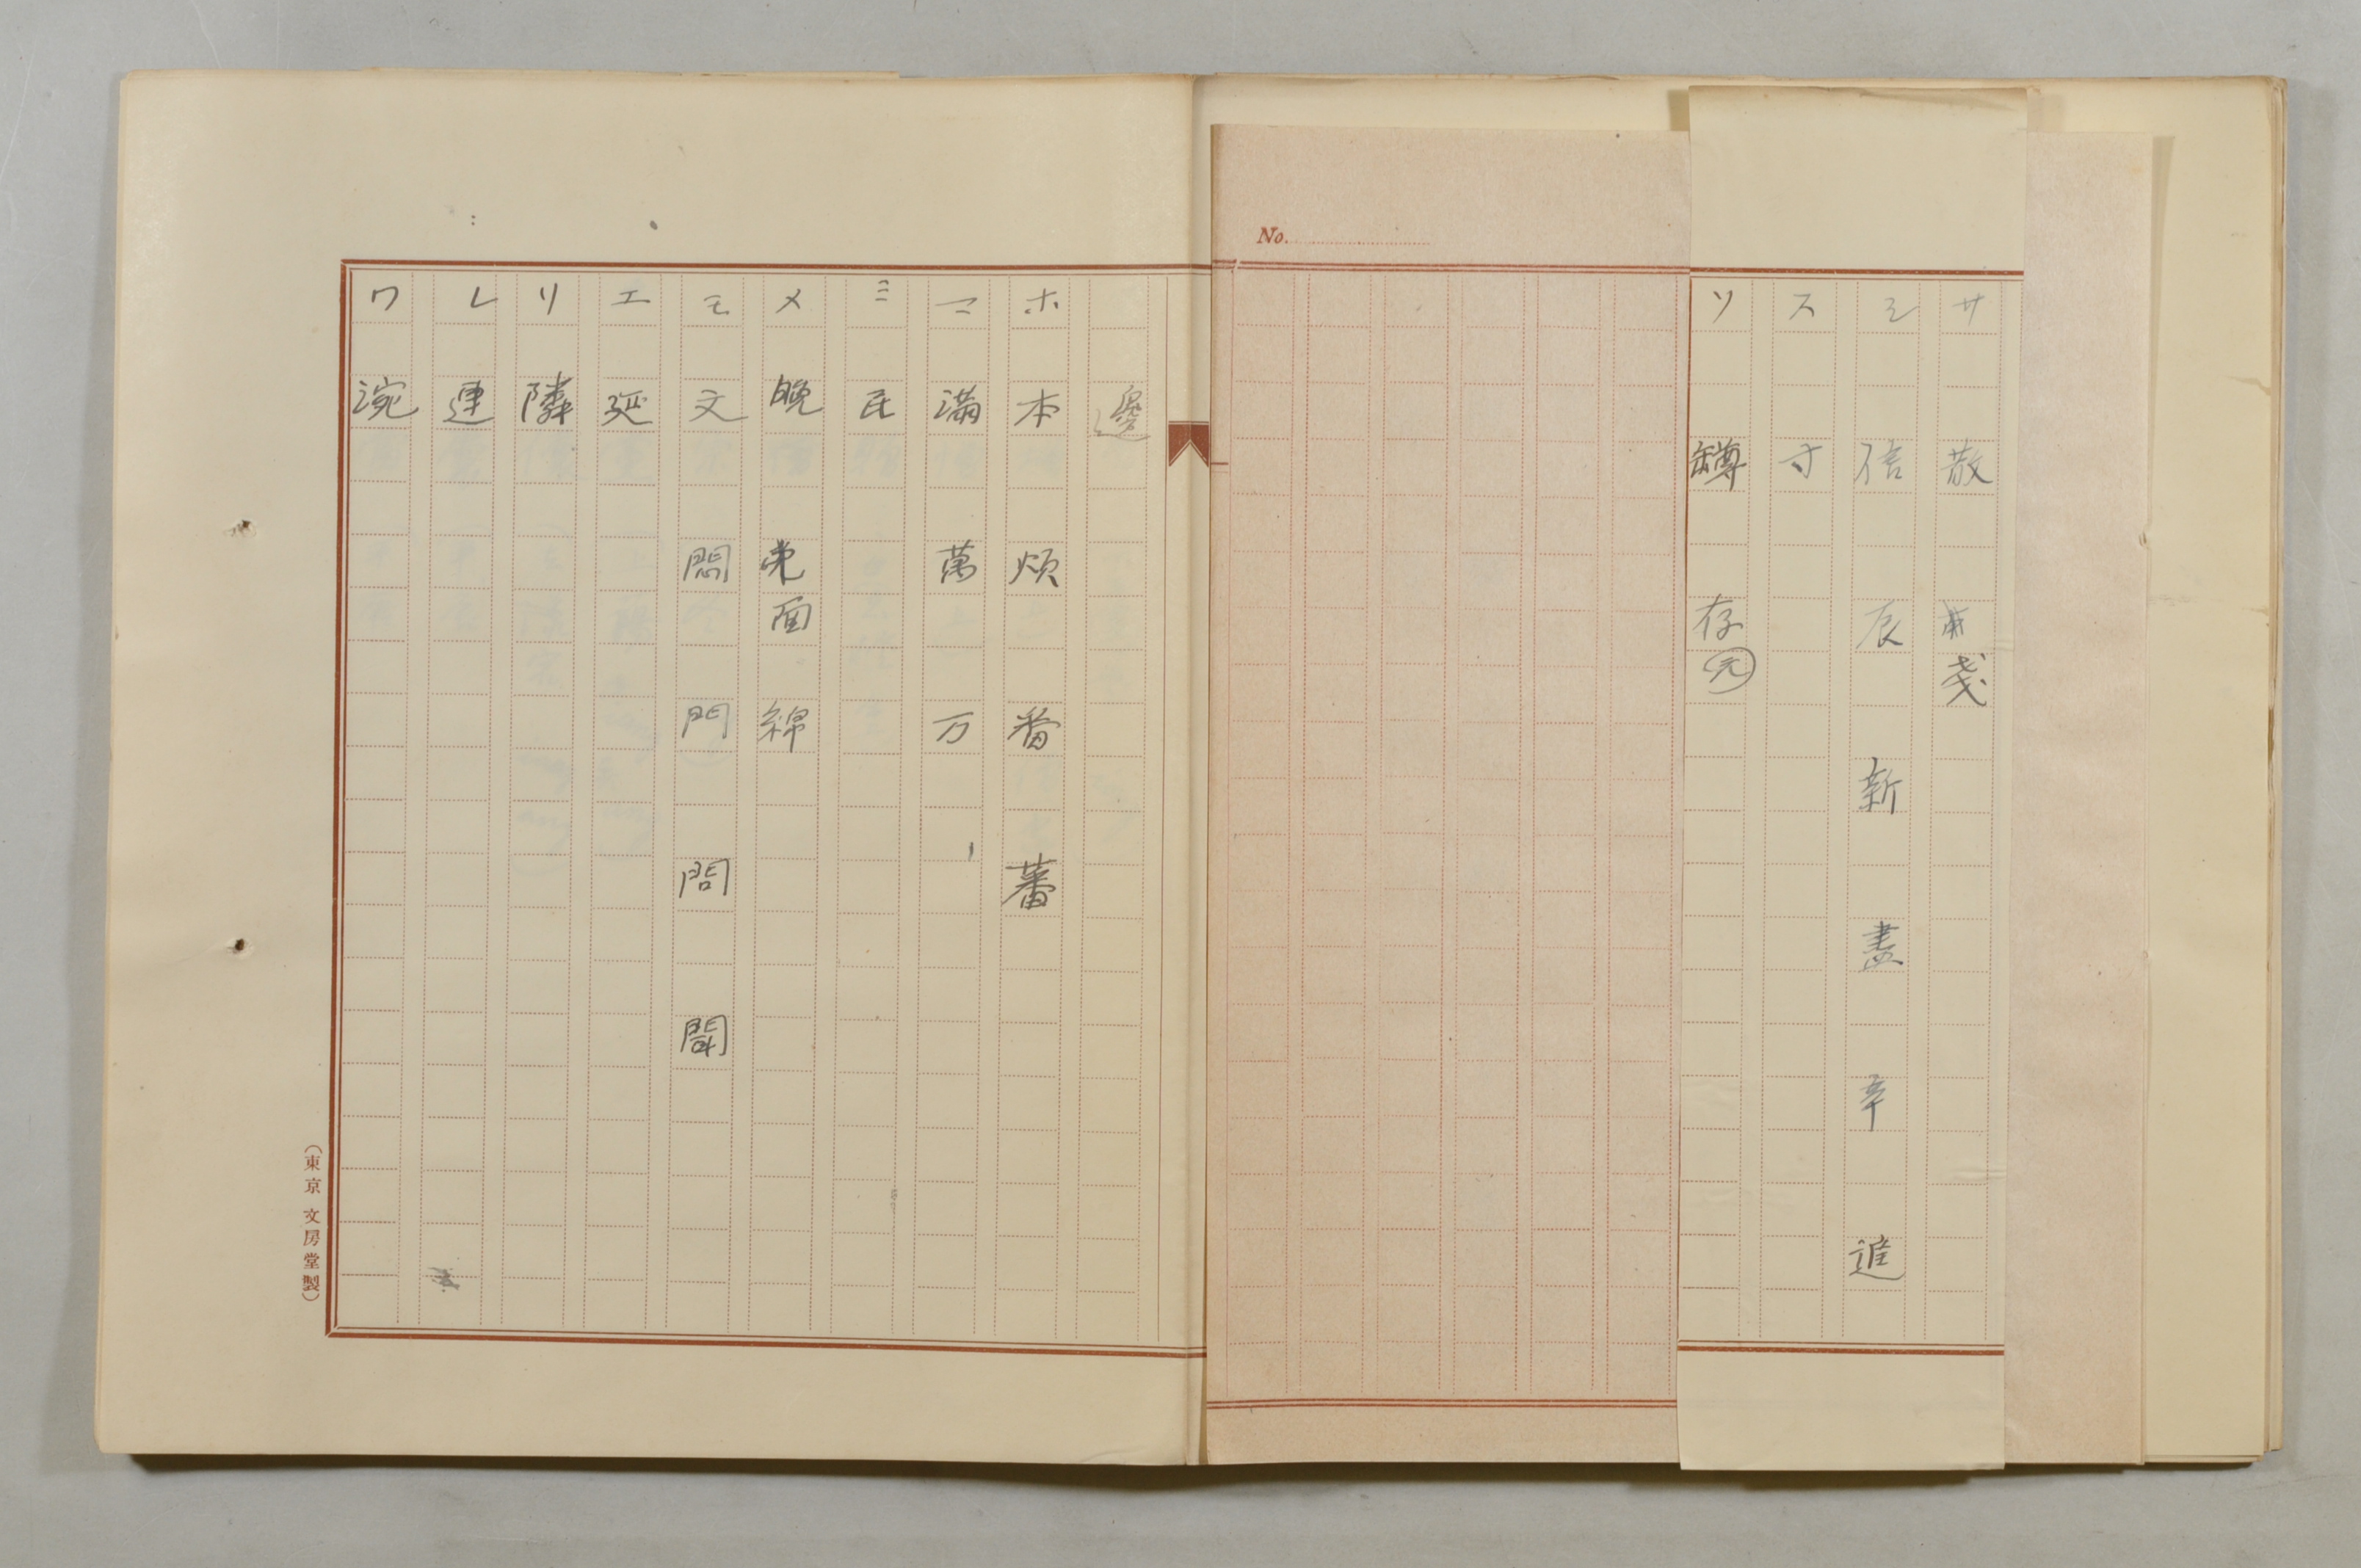 サ 散 戔
シ 信 辰 新 盡 辛 進
ス 寸
ソ 鐏 存 元
No.
邊
ホ 本 煩 番 蕃
マ 満 萬 万
ミ 民
メ 晩 免 面 綿
モ 文 悶 門 問 聞
エ 延
リ 隣
レ 連
ワ 涴
(東京 文房堂製)